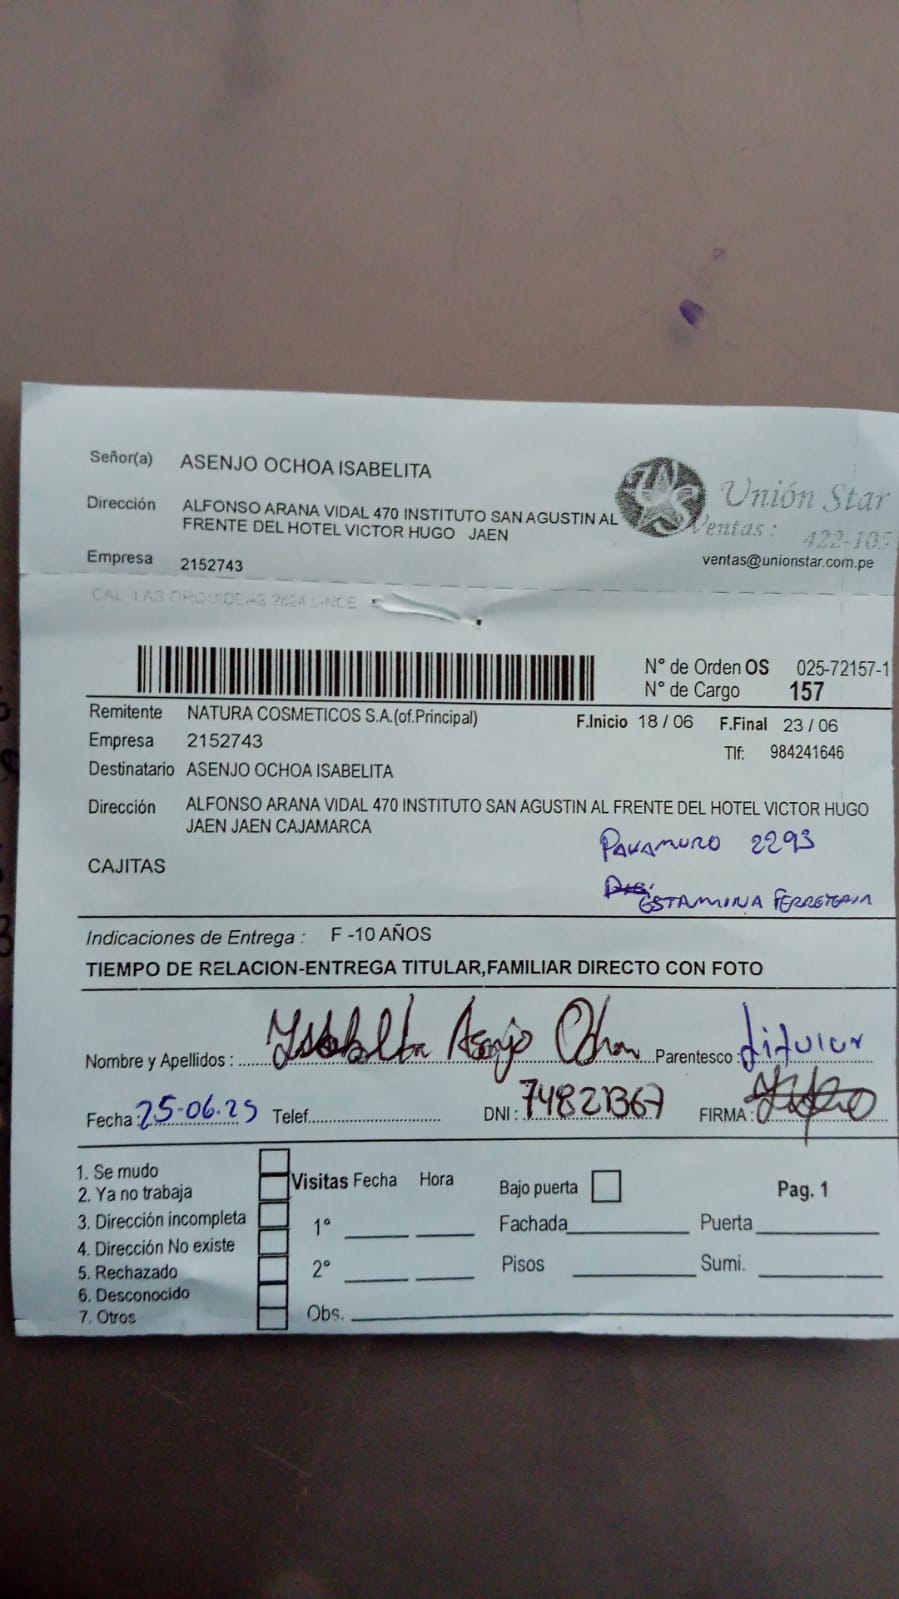 Señor(a) ASENJO OCHOA ISABELITA
Dirección ALFONSO ARANA VIDAL 470 INSTITUTO SAN AGUSTIN AL
FRENTE DEL HOTEL VICTOR HUGO JAEN
Empresa 2152743
Unión Star
Ventas: 422-105
ventas@unionstar.com.pe
CAL. LAS ORQUIDEAS 2624 LINCE
N° de Orden OS 025-72157-1
N° de Cargo 157
Remitente NATURA COSMETICOS S.A.(of.Principal) F.Inicio 18 / 06 F.Final 23 / 06
Empresa 2152743 Tlf: 984241646
Destinatario ASENJO OCHOA ISABELITA
Dirección ALFONSO ARANA VIDAL 470 INSTITUTO SAN AGUSTIN AL FRENTE DEL HOTEL VICTOR HUGO
JAEN JAEN CAJAMARCA
PAKAMURO 2293
CAJITAS
ESTAMINA FERRETERIA
Indicaciones de Entrega : F -10 AÑOS
TIEMPO DE RELACION-ENTREGA TITULAR,FAMILIAR DIRECTO CON FOTO
Nombre y Apellidos : Isabelita Asenjo Ochoa Parentesco : titular
Fecha : 25-06-25 Telef. DNI : 74821367 FIRMA :
1. Se mudo
2. Ya no trabaja
3. Dirección incompleta
4. Dirección No existe
5. Rechazado
6. Desconocido
7. Otros
Visitas Fecha Hora Bajo puerta Pag. 1
1° Fachada Puerta
2° Pisos Sumi.
Obs.